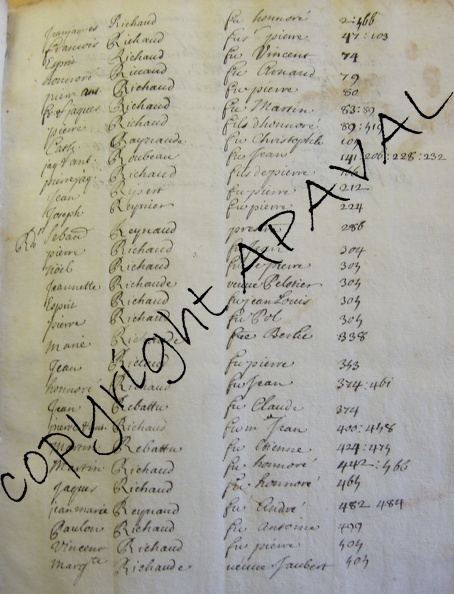 Richaud fu honnoré 2:466
francois Richaud fus pierre 47:103
Esprit Richaud fu Vincent 74
honnoré Ricaud fu Arnaud 79
pierre ant. Richaud fu pierre 80
Jaques Richaud fu Martin 83:89
pierre Richaud fils dhonnoré 89:410
Raynaude fu Christophle
Roubeau fu Jean 141 206:228:232
Richaud fils de pierre
Jean fu pierre 212
Joseph Reynier fu pierre 224
Sebaud Reynaud 286
pierre Richaud 304
Noël Richaud pierre 304
Jeannette Richaude veuue Pelotier 304
Esprit Richaud fu jean Louis 304
pierre Richaud fu Pol 304
Marie fée Berlie 338
Jean fu pierre 343
honnoré Richaud fu Jean 374:461
Jean Rebattu fu Claude 374
Richaud fu Jean 400:448
Martin Rebattu fu Etienne 424:474
Martin Richaud fu honnoré 442:466
Jaques Richaud fu honnoré 464
Jean marie Reynaud fu André 482 484
Paulon Richaud fu Antoine 499
Vincent Richaud fu pierre 504
Marg.te Richaude veuue Jaubert 504
copyright APAVAL